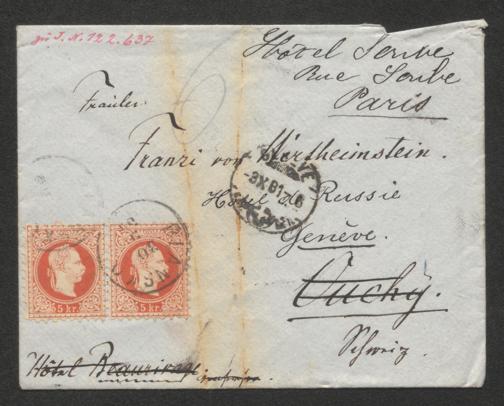 zu I. N. 122.637
Hôtel Scribe
Rue Scribe
Paris
Fräulein
Franzi von Wertheimstein.
Hôtel de Russie
Genève.
Ouchy.
Schweiz.
Hôtel Beaurivage
-3 X 81-
5 kr. 5 kr.